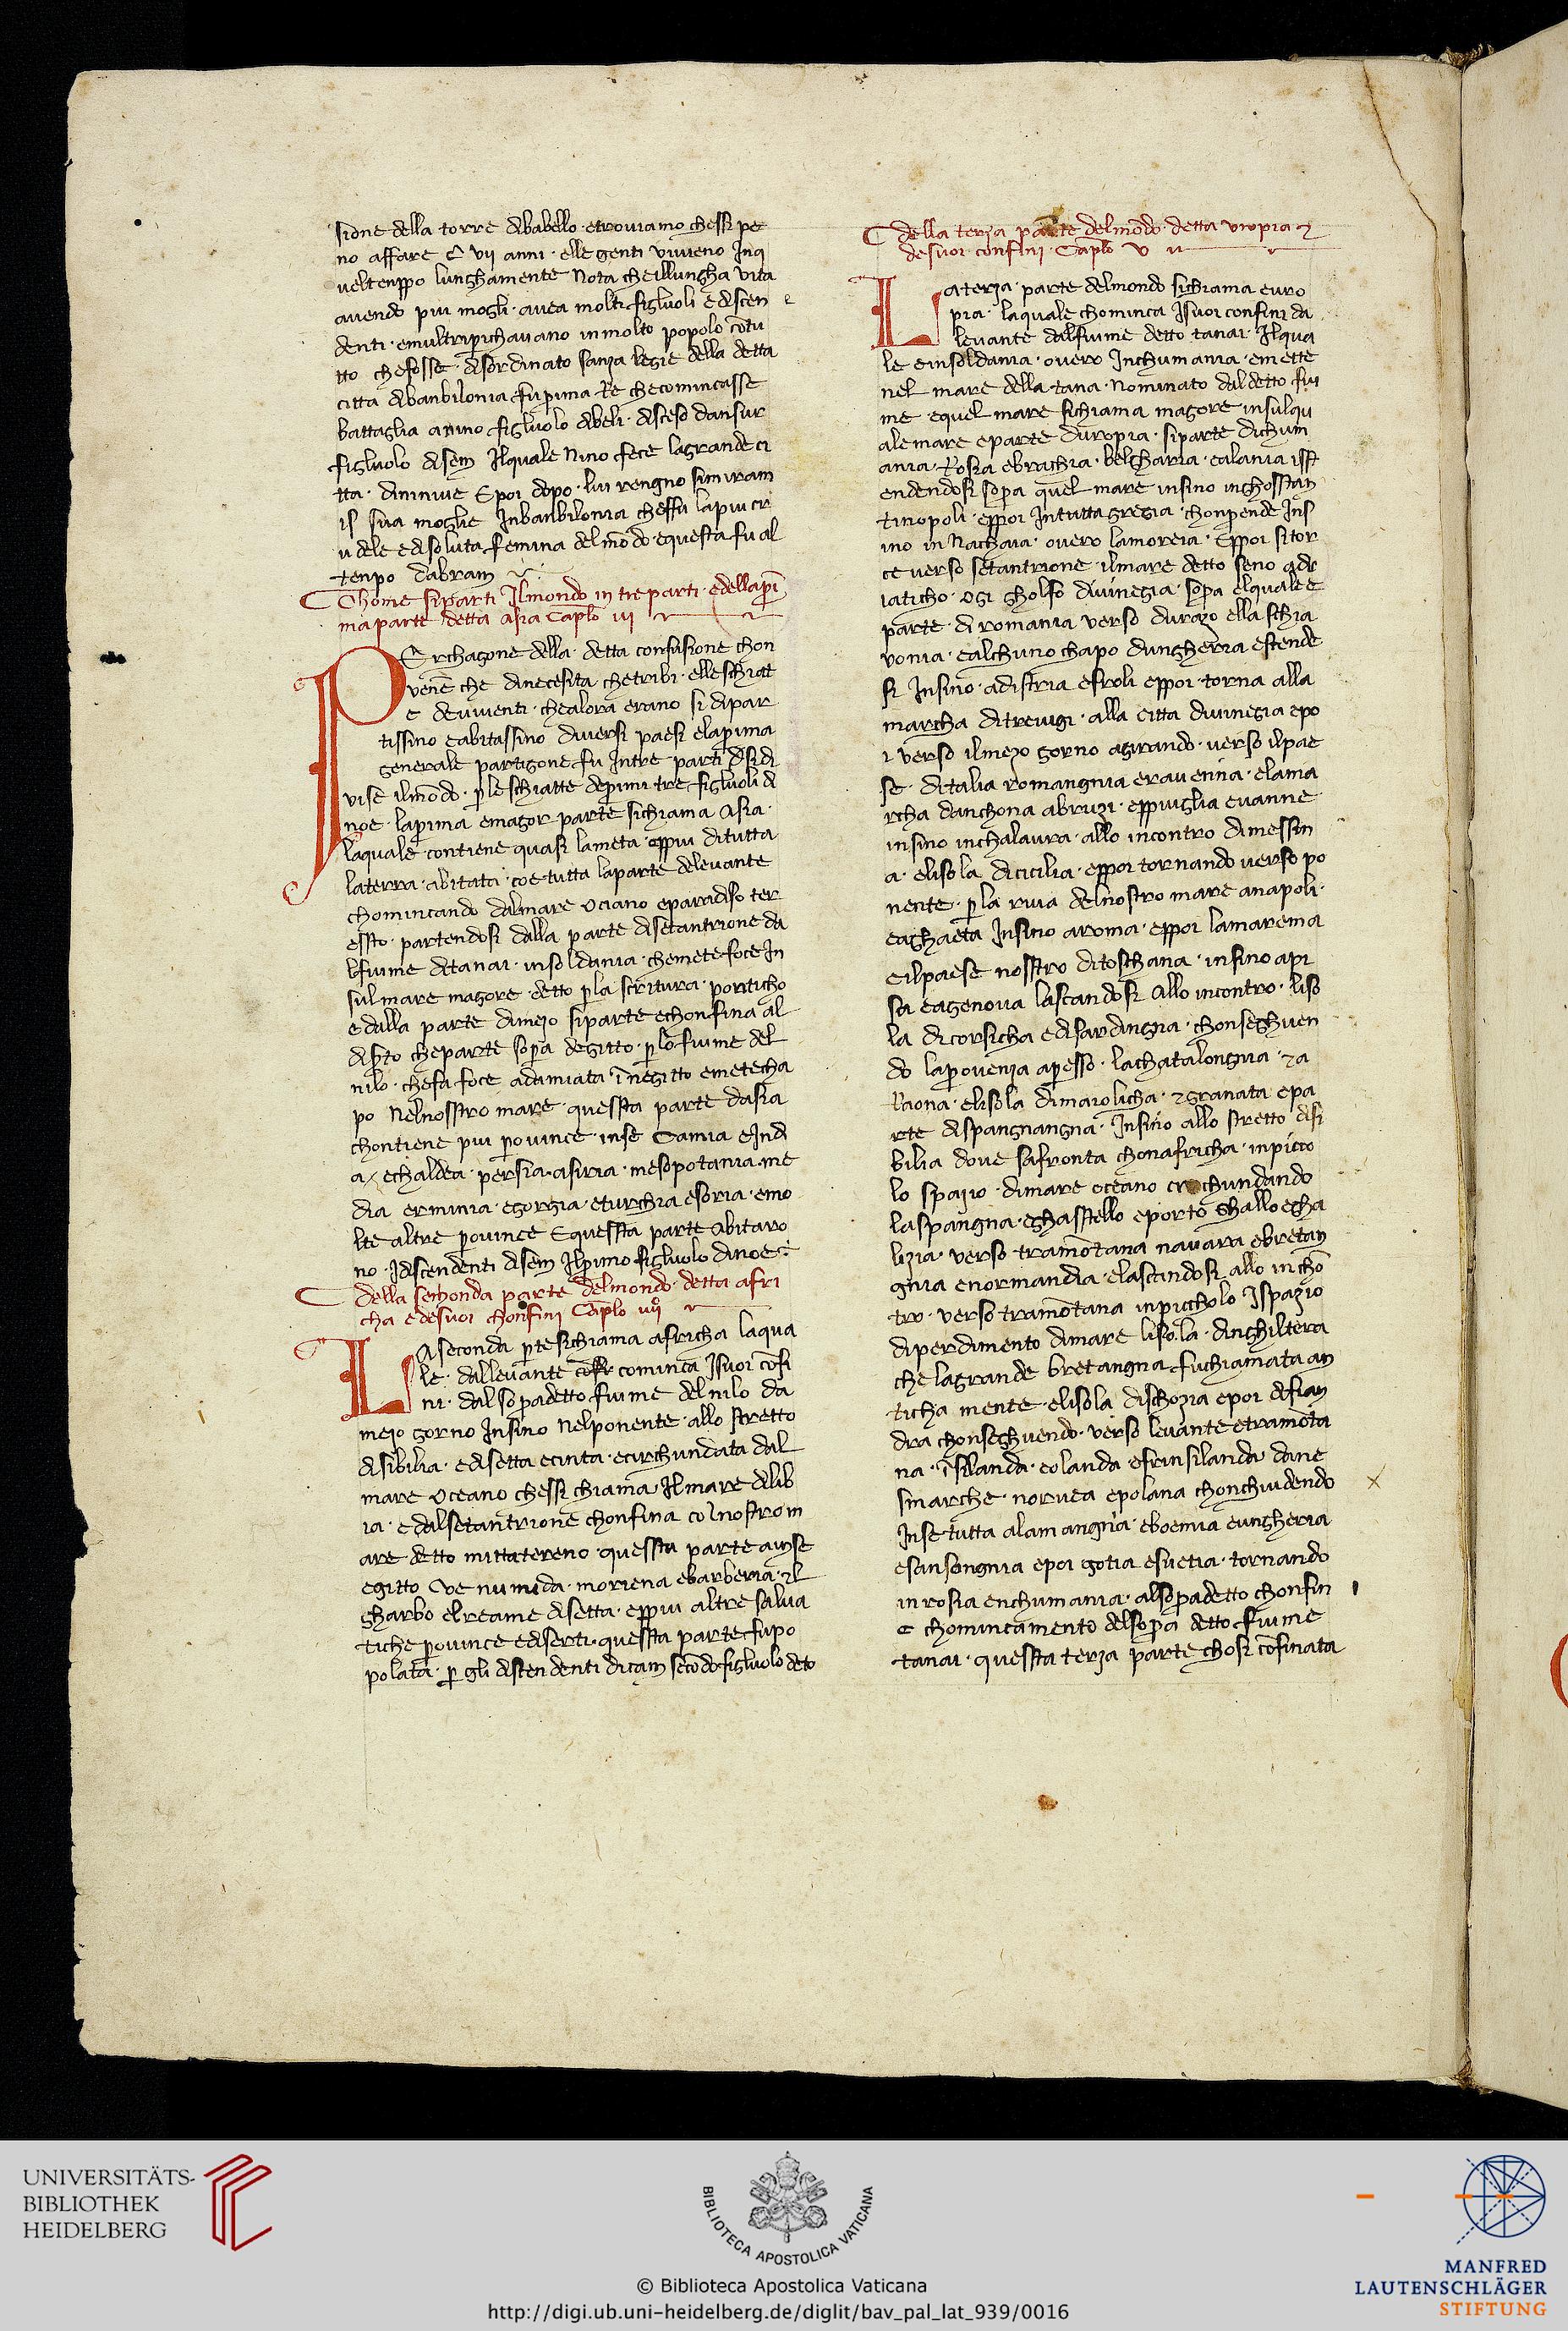 sione della torre dibabello · etroviamo chessi pe
no affare C vii anni · elle genti viveno Inq
ueltenppo lunghamente Nota che illungha vita
avendo piu mogli · avea molti figluoli e discen
denti · emultripichavano inmolto popolo cōtu
tto chefosse · disordinato sanza legie della detta
citta dibanbilonia fupima Re checomincasse
battaglia anino figluolo dibeli · disceso dansur
figluolo disem Ilquale Nino fece lagrande ci
tta · dininive E poi dopo · lui rengno simiram
is sua moglie Inbanbilonia cheffu lapiu cr
udele edisoluta femina delmōdo · equesta fu al
tenpo dabram
Chome siparti Ilmondo in tre parti · edellapi
ma parte detta asia Caplo iii
PErchagone della · detta confusione chon
venē che dinecesita chetribi · elleschiat
e deviventi · chealora erano si dipar
tissino eabitassino diversi paesi elapima
generale partigone fu Intre parti disidi
vise ilmōdo · p le schiatte depimi tre figluoli di
noe · lapima emagor parte sichiama Asia ·
laquale contiene quasi lameta · eppiu ditutta
laterra · abitata · coe tutta laparte delevante
chomincando dalmare Uciano eparadiso ter
essto · partendosi dalla parte disetantrione da
lfiume ditanai · insoldania · chemete foce In
sulmare magore · detto pla scritura · pontticho
e dalla parte dimezo siparte echonfina al
diserto cheparte sopa degitto · plofiume del
nilo · chefa foce adamiata īnegitto emetecha
po Nelnosstro mare · quessta parte dasia
chontiene piu povince · inse Camia eIndi
a echaldea · persia · asiria · mesopotania · me
dia erminia · egorgia · eturchia esoria · emo
lte altre povince Equessta parte abitaro
no · Idiscendenti disem Ilpimo figluolo dinoe
della sechonda parte delmondo · detta afri
cha edesuoi chonfini Caplo iiii
LA seconda pte sichiama africha laqua
le · dallevante cominca Isuoi cōfi
ni · dalsopadetto fiume del nilo da
mezo gorno Insino Nelponente allo stretto
disibilia · edisetta ecinta · ecirchundata dal
mare Uceano chessi chiama Ilmare dilib
ia · e dalsetantrione chonfina colnostro m
are detto mittatereno · quessta parte ainse
egitto Ve numida · moriena ebarberia · el
gharbo elreame disetta · eppiu altre salva
tiche povince ediserti · quessta parte fupo
polata · p gli discendenti dicam secōdo figluolo deto
della terza parte delmōdo · detta Uropia e
desuoi confini · Caplo V
LA terza · parte delmondo sichiama euro
pia · laquale chominca Isuoi confini da
levante dalfiume detto tanai · Ilqua
le einsoldania · overo Inchumania · emette
nel mare della tana · Nominato daldetto fiu
me equel mare sichiama magore insulqu
ale mare eparte duropia · siparte dichum
ania · Rosia ebrachia · belgharia · ealania isst
endendosi sopa quel mare insino inghosstan
tinopoli · eppoi Intutta gresia · chonpende Ins
ino in Nachaia · overo lamoreia · Eppoi sitor
ce verso setantrione · ilmare detto seno adr
iaticho · ogi gholfo divinegia · sopa elquale e
parte di romania verso durazo ella schia
vonia · ealchuno chapo dungheria estende
si Insino · adistria efroli eppoi torna alla
marcha ditrevigi · alla citta divinegia epo
i verso ilmezo gorno agirando · verso ilpae
se · ditalia romangnia eravenna · elama
rcha danchona abruzi · eppuiglia evanne
insino inchalavra · allo incontro dimessin
a · elisola dicicilia · eppoi tornando verso po
nente · pla riva delnostro mare anapoli ·
eaghaeta Insino aroma · eppoi lamarema
eilpaese nosstro ditoschana · insino api
sa eagenova lascandosi Allo incontro · liso
la dicorsicha edisardingna · chonseghuen
do lapovenza apesso · lachatalongnia · e a
Raona · elisola dimaiolicha · e granata epa
rte dispangnangna · Insino allo stretto disi
bilia dove safronta chonafricha · inpicco
lo spazio · dimare oceano crchundando
laspangna · eghasstello eporto ghalloegha
lizia · verso tramōtana navara ebretan
gnia enormandia · elascandosi allo inchō
tro · verso tramōtana inpiccholo Ispazio
dipardimento dimare lisola · dinghiltera
che lagrande bretangna fuchiamata an
ticha mente · elisola dischozia epoi difian
dra chonseghuendo · verso levante etramōta
na · īsilanda · eolanda efrinsilanda dane
smarche · norvea epolana chonchiudendo
Inse tutta alamangnia · eboemia eungheria
esansongnia epoi gotia esuetia · tornando
inrosia enchumania · alsopadetto chonfin
e chomincamento delsopa detto fiume
tanai · quessta terza parte chosi cōfinata
UNIVERSITÄTS-
BIBLIOTHEK
HEIDELBERG
BIBLIOTECA APOSTOLICA VATICANA
© Biblioteca Apostolica Vaticana
http://digi.ub.uni-heidelberg.de/diglit/bav_pal_lat_939/0016
MANFRED
LAUTENSCHLÄGER
STIFTUNG